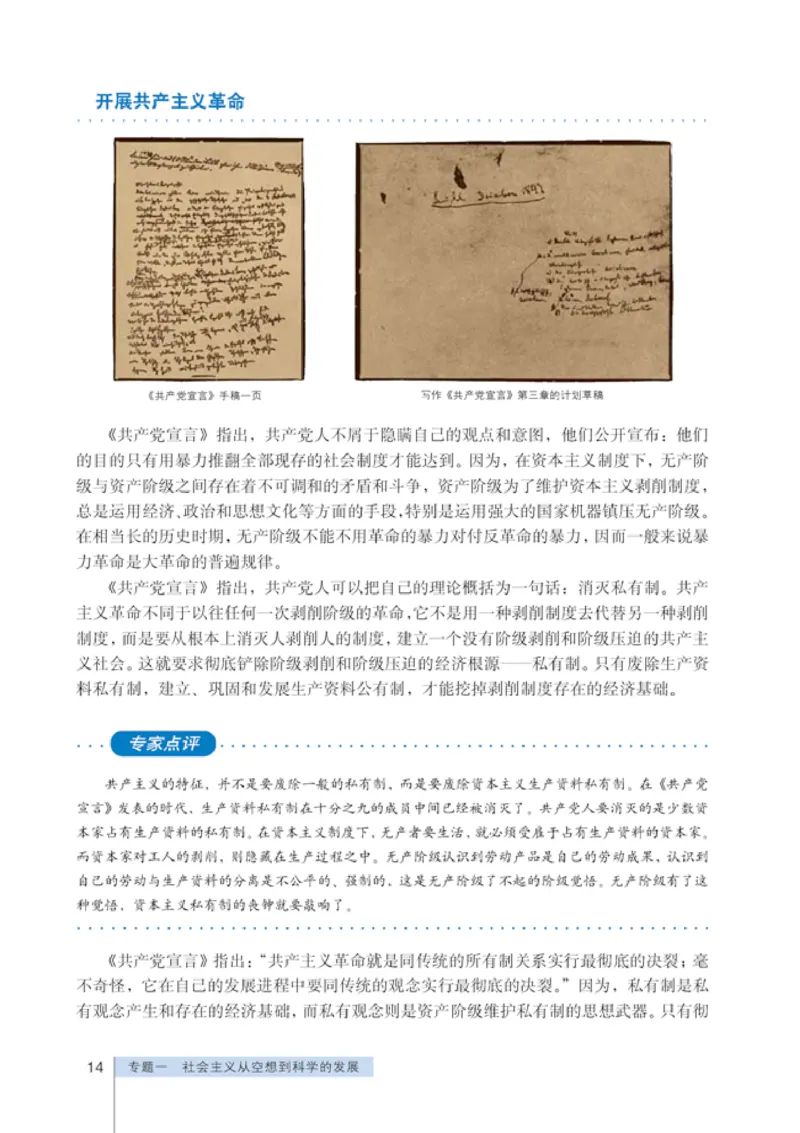 开展共产主义革命
《共产党宣言》手稿一页
写作《共产党宣言》第三章的计划草稿
《共产党宣言》指出，共产党人不屑于隐瞒自己的观点和意图，他们公开宣布：他们
的目的只有用暴力推翻全部现存的社会制度才能达到。因为，在资本主义制度下，无产阶
级与资产阶级之间存在着不可调和的矛盾和斗争，资产阶级为了维护资本主义剥削制度，
总是运用经济、政治和思想文化等方面的手段，特别是运用强大的国家机器镇压无产阶级。
在相当长的历史时期，无产阶级不能不用革命的暴力对付反革命的暴力，因而一般来说暴
力革命是大革命的普遍规律。
《共产党宣言》指出，共产党人可以把自己的理论概括为一句话：消灭私有制。共产
主义革命不同于以往任何一次剥削阶级的革命，它不是用一种剥削制度去代替另一种剥削
制度，而是要从根本上消灭人剥削人的制度，建立一个没有阶级剥削和阶级压迫的共产主
义社会。这就要求彻底铲除阶级剥削和阶级压迫的经济根源——私有制。只有废除生产资
料私有制，建立、巩固和发展生产资料公有制，才能挖掉剥削制度存在的经济基础。
专家点评
共产主义的特征，并不是要废除一般的私有制，而是要废除资本主义生产资料私有制。在《共产党
宣言》发表的时代，生产资料私有制在十分之九的成员中间已经被消灭了。共产党人要消灭的是少数资
本家占有生产资料的私有制。在资本主义制度下，无产者要生活，就必须受雇于占有生产资料的资本家。
而资本家对工人的剥削，则隐藏在生产过程之中。无产阶级认识到劳动产品是自己的劳动成果，认识到
自己的劳动与生产资料的分离是不公平的、强制的，这是无产阶级了不起的阶级觉悟。无产阶级有了这
种觉悟，资本主义私有制的丧钟就要敲响了。
《共产党宣言》指出：“共产主义革命就是同传统的所有制关系实行最彻底的决裂；毫
不奇怪，它在自己的发展进程中要同传统的观念实行最彻底的决裂。”因为，私有制是私
有观念产生和存在的经济基础，而私有观念则是资产阶级维护私有制的思想武器。只有彻
14 专题一 社会主义从空想到科学的发展